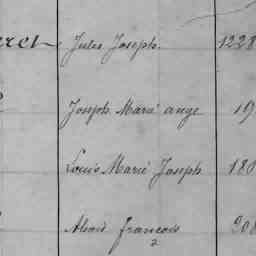 Jules Joseph. 1228
Joseph Marie ange 19
Louis Marie Joseph 180
francois 208
2